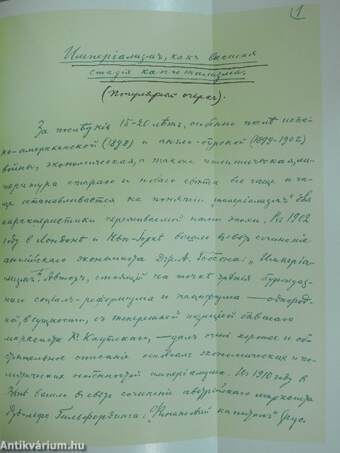 1
Имперіализмъ, какъ высшая
стадія капитализма.
(Популярный очеркъ).
За послѣднія 15-20 лѣтъ, особенно послѣ испа-
но-американской (1898) и англо-бурской (1899-1902)
войны, экономическая, а также политическая, ли-
тература стараго и новаго свѣта все чаще и ча-
ще останавливается на понятіи "имперіализмъ" для
характеристики переживаемой нами эпохи. Въ 1902
году въ Лондонѣ и Нью-Іоркѣ вышло въ свѣтъ сочиненіе
англійскаго экономиста Дж. А. Гобсона: "Имперіа-
лизмъ". Авторъ, стоящій на точкѣ зрѣнія буржуаз-
наго соціалъ-реформизма и пацифизма — однород-
ной, въ сущности, съ теперешней позиціей бывшаго
марксиста К. Каутскаго, — далъ очень хорошее и об-
стоятельное описаніе основныхъ экономическихъ и по-
литическихъ особенностей имперіализма. Въ 1910 году въ
Вѣнѣ вышло въ свѣтъ сочиненіе австрійскаго марксиста
Рудольфа Гильфердинга: "Финансовый капиталъ" (рус-
antikvarium.hu
Antikvárium.hu